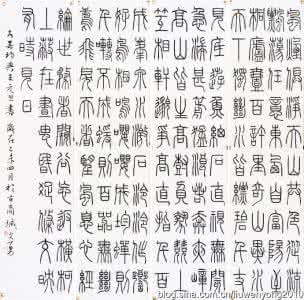 風煙俱淨天山共色從流
飄蕩任意東西自富陽至
桐廬一百許里奇山異水
天下獨絕水皆縹碧千丈
見底游魚細石直視無礙
急湍甚箭猛浪若奔夾岸
高山皆生寒樹負勢競上
互相軒邈爭高直指千百
成峰泉水激石泠泠作響
好鳥相鳴嚶嚶成韻蟬則
千轉不窮猿則百叫無絕
鳶飛戾天者望峰息心經
綸世務者窺谷忘反橫柯
上蔽在晝猶昏疏條交映
有時見日
吳均與朱元思書
blog.sina.com.cn/liuwenyong2010